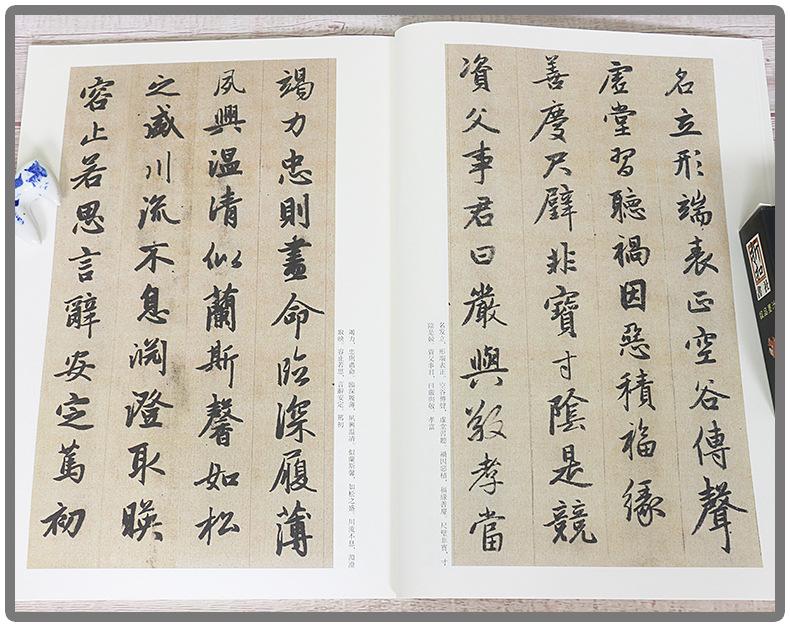 名立形端表正空谷傳聲
虛堂習聽禍因惡積福緣
善慶尺璧非寶寸陰是競
資父事君曰嚴與敬孝當
名立，形端表正。空谷傳聲，虛堂習聽。禍因惡積，福緣善慶。尺璧非寶，寸
陰是競。資父事君，曰嚴與敬。孝當
竭力忠則盡命臨深履薄
夙興温清似蘭斯馨如松
之盛川流不息淵澄取暎
容止若思言辭安定篤初
竭力，忠則盡命。臨深履薄，夙興温清。似蘭斯馨，如松之盛。川流不息，淵澄
取暎。容止若思，言辭安定。篤初